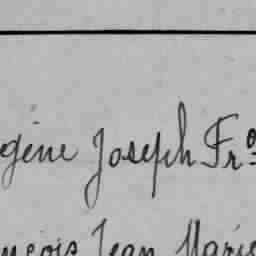 gène Joseph Fr
nçois Jean Marie